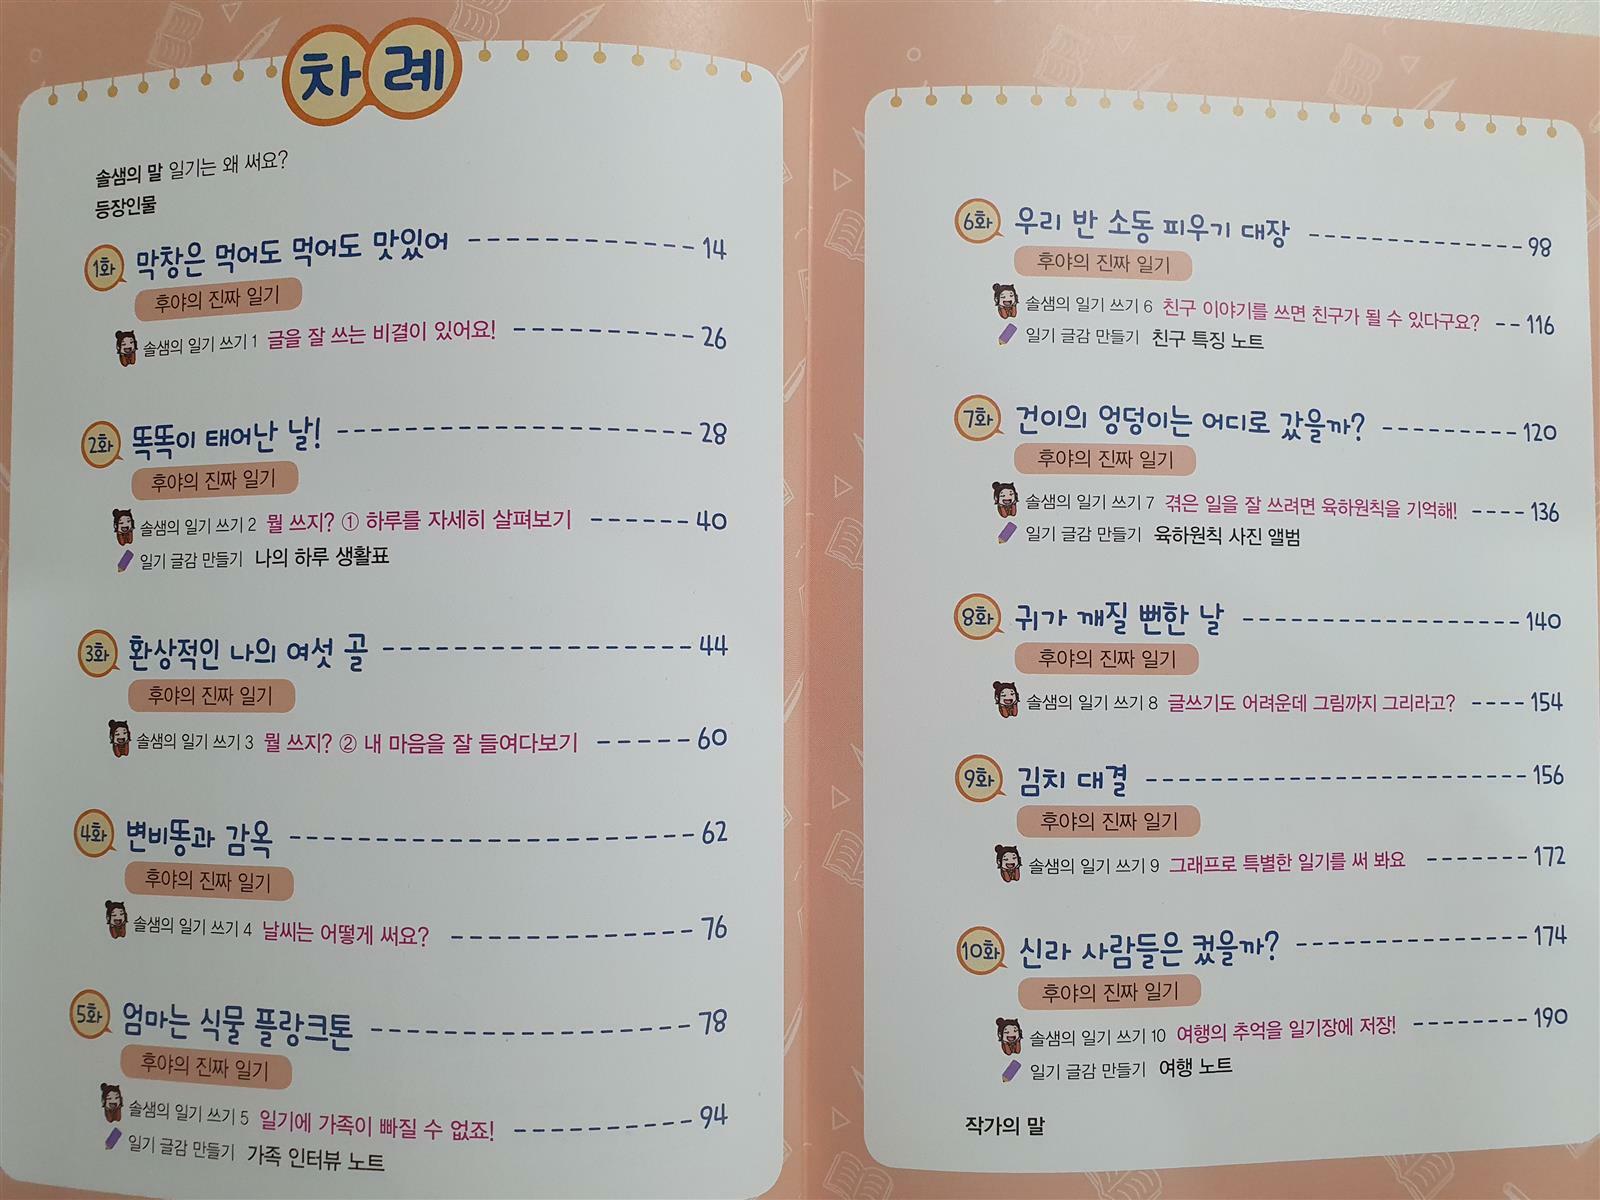 차례
솔샘의 말 일기는 왜 써요?
등장인물
1화 막창은 먹어도 먹어도 맛있어 14
후야의 진짜 일기
솔샘의 일기 쓰기 1 글을 잘 쓰는 비결이 있어요! 26
2화 똑똑이 태어난 날! 28
후야의 진짜 일기
솔샘의 일기 쓰기 2 뭘 쓰지? ① 하루를 자세히 살펴보기 40
일기 글감 만들기 나의 하루 생활표
3화 환상적인 나의 여섯 골 44
후야의 진짜 일기
솔샘의 일기 쓰기 3 뭘 쓰지? ② 내 마음을 잘 들여다보기 60
4화 변비똥과 감옥 62
후야의 진짜 일기
솔샘의 일기 쓰기 4 날씨는 어떻게 써요? 76
5화 엄마는 식물 플랑크톤 78
후야의 진짜 일기
솔샘의 일기 쓰기 5 일기에 가족이 빠질 수 없죠! 94
일기 글감 만들기 가족 인터뷰 노트
6화 우리 반 소동 피우기 대장 98
후야의 진짜 일기
솔샘의 일기 쓰기 6 친구 이야기를 쓰면 친구가 될 수 있다구요? 116
일기 글감 만들기 친구 특징 노트
7화 건이의 엉덩이는 어디로 갔을까? 120
후야의 진짜 일기
솔샘의 일기 쓰기 7 겪은 일을 잘 쓰려면 육하원칙을 기억해! 136
일기 글감 만들기 육하원칙 사진 앨범
8화 귀가 깨질 뻔한 날 140
후야의 진짜 일기
솔샘의 일기 쓰기 8 글쓰기도 어려운데 그림까지 그리라고? 154
9화 김치 대결 156
후야의 진짜 일기
솔샘의 일기 쓰기 9 그래프로 특별한 일기를 써 봐요 172
10화 신라 사람들은 컸을까? 174
후야의 진짜 일기
솔샘의 일기 쓰기 10 여행의 추억을 일기장에 저장! 190
일기 글감 만들기 여행 노트
작가의 말